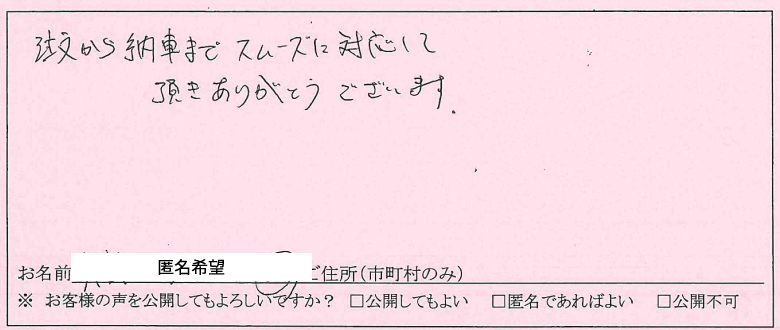 注文から納車まで スムーズに 対応して
頂きありがとう ございます.
お名前 匿名希望 ご住所(市町村のみ)
※ お客様の声を公開してもよろしいですか? □公開してもよい □匿名であればよい □公開不可